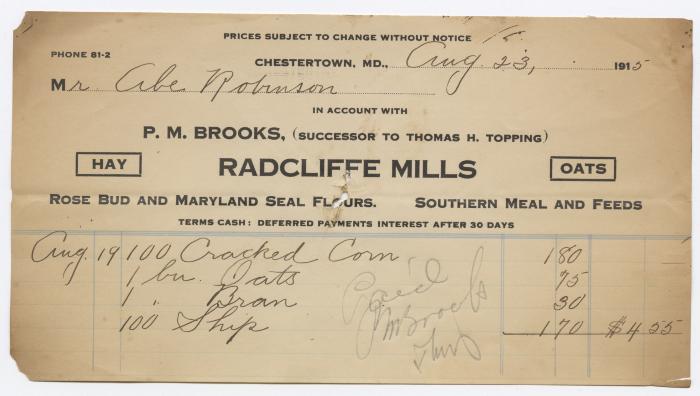 PRICES SUBJECT TO CHANGE WITHOUT NOTICE
PHONE 81-2
CHESTERTOWN, MD., Aug. 23, 1915
Mr Abe Robinson
IN ACCOUNT WITH
P. M. BROOKS, (SUCCESSOR TO THOMAS H. TOPPING)
HAY RADCLIFFE MILLS OATS
ROSE BUD AND MARYLAND SEAL FLOURS. SOUTHERN MEAL AND FEEDS
TERMS CASH: DEFERRED PAYMENTS INTEREST AFTER 30 DAYS
Aug. 19 100 Cracked Corn 180
1 bu. Oats 75
1 " Bran 30
100 Ship 170 $4 55
PMBrooks